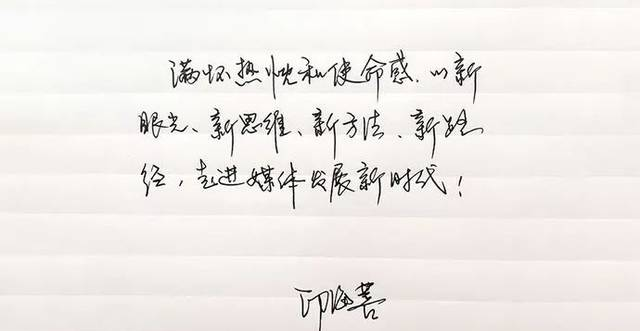 满怀热忱和使命感，以新
眼光、新思维、新方法、新路
径，走进媒体发展新时代！